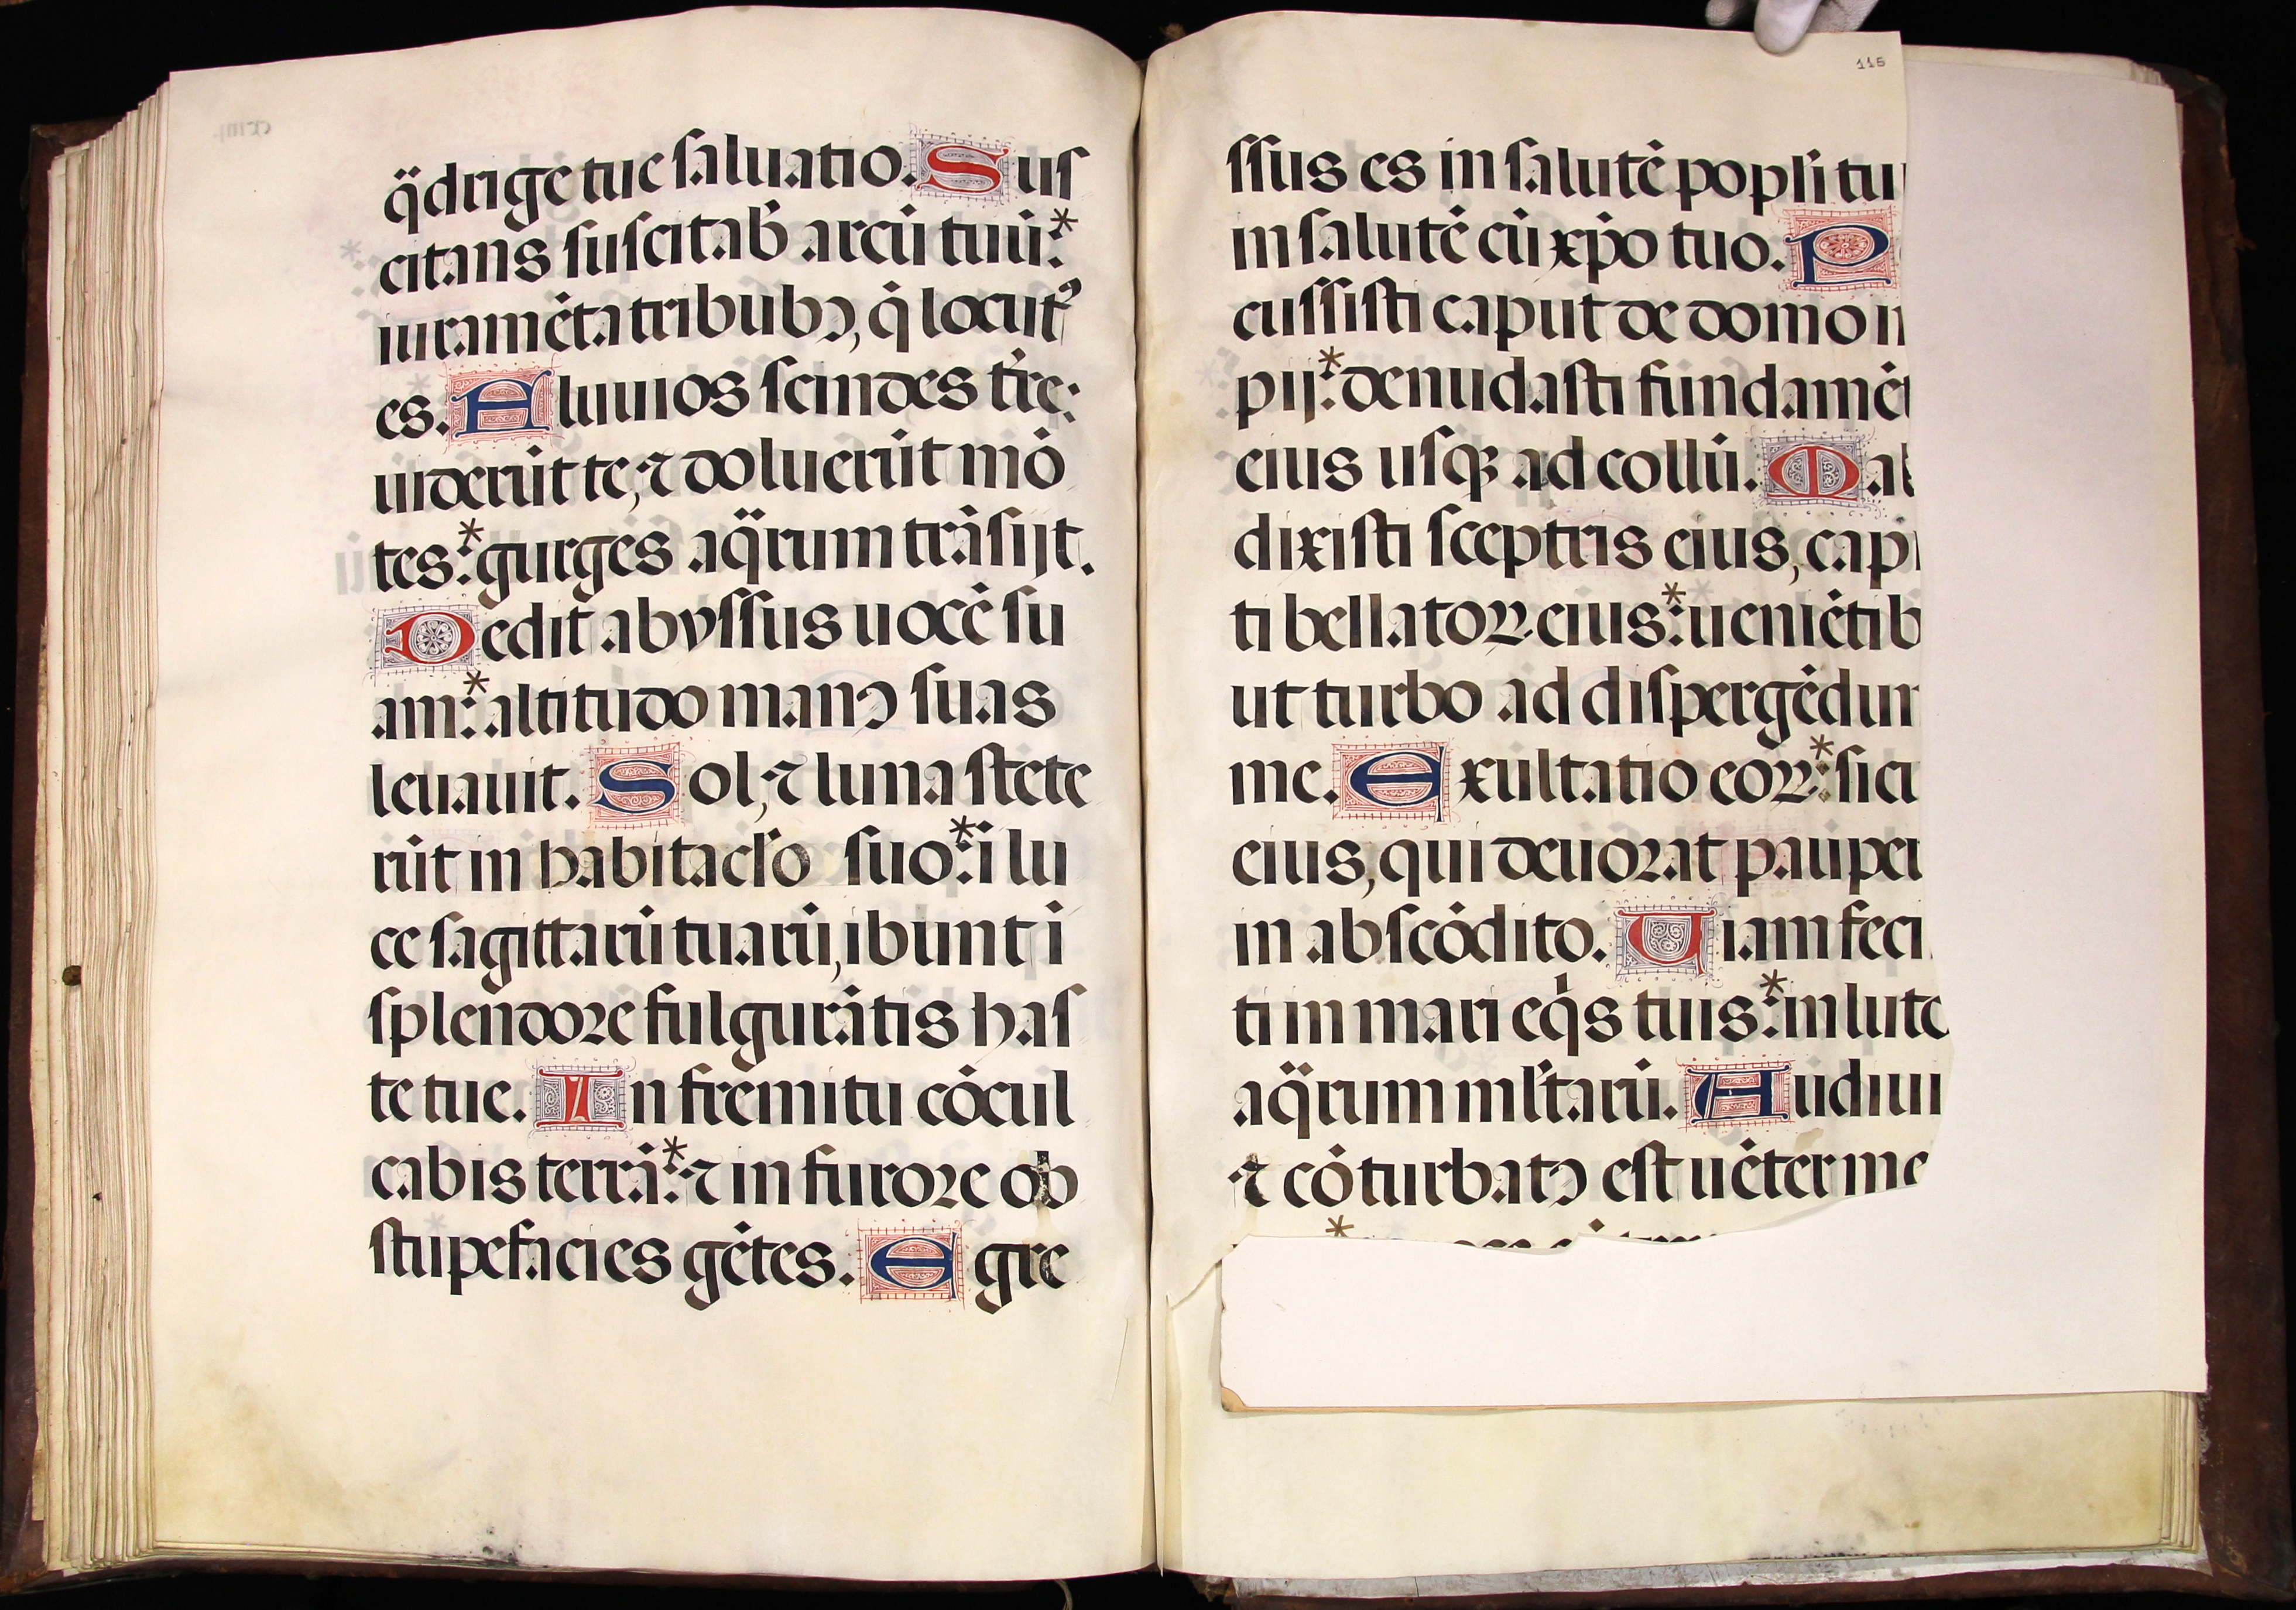 q̈drige tue saluatio. Sus
citans suscitab̄ arcū tuū:*
iuramēta tribubꝰ, q̄ locutꝰ
es. Fluuios scindes tr̄e:
uiderūt te, ⁊ doluerūt mō
tes:* gurges aq̈rum trāsijt.
Dedit abyssus uocē su
am:* altitudo manꝰ suas
leuauit. Sol, ⁊ luna stete
rūt in habitaclo suo:* ī lu
ce sagittarū tuarū, ibunt ī
splendore fulgurātis has
te tue. In fremitu cōcul
cabis terrā:* ⁊ in furore ob
stupefacies gētes. Egre
115
ssus es in salutē popli tu
in salutē cū xp̄o tuo. P
cussisti caput de domo i
pij:* denudasti fundamē
eius usqꝫ ad collū. Mal
dixisti sceptris eius, capi
ti bellatoꝝ eius:* ueniētib
ut turbo ad dispergēdum
me. Exultatio eoꝝ:* sicu
eius, qui deuorat pauper
in abscōdito. Uiam feci
ti in mari eq̇s tuis:* in luto
aq̈rum ml̄tarū. Audiui
⁊ cōturbatꝰ est uēter me